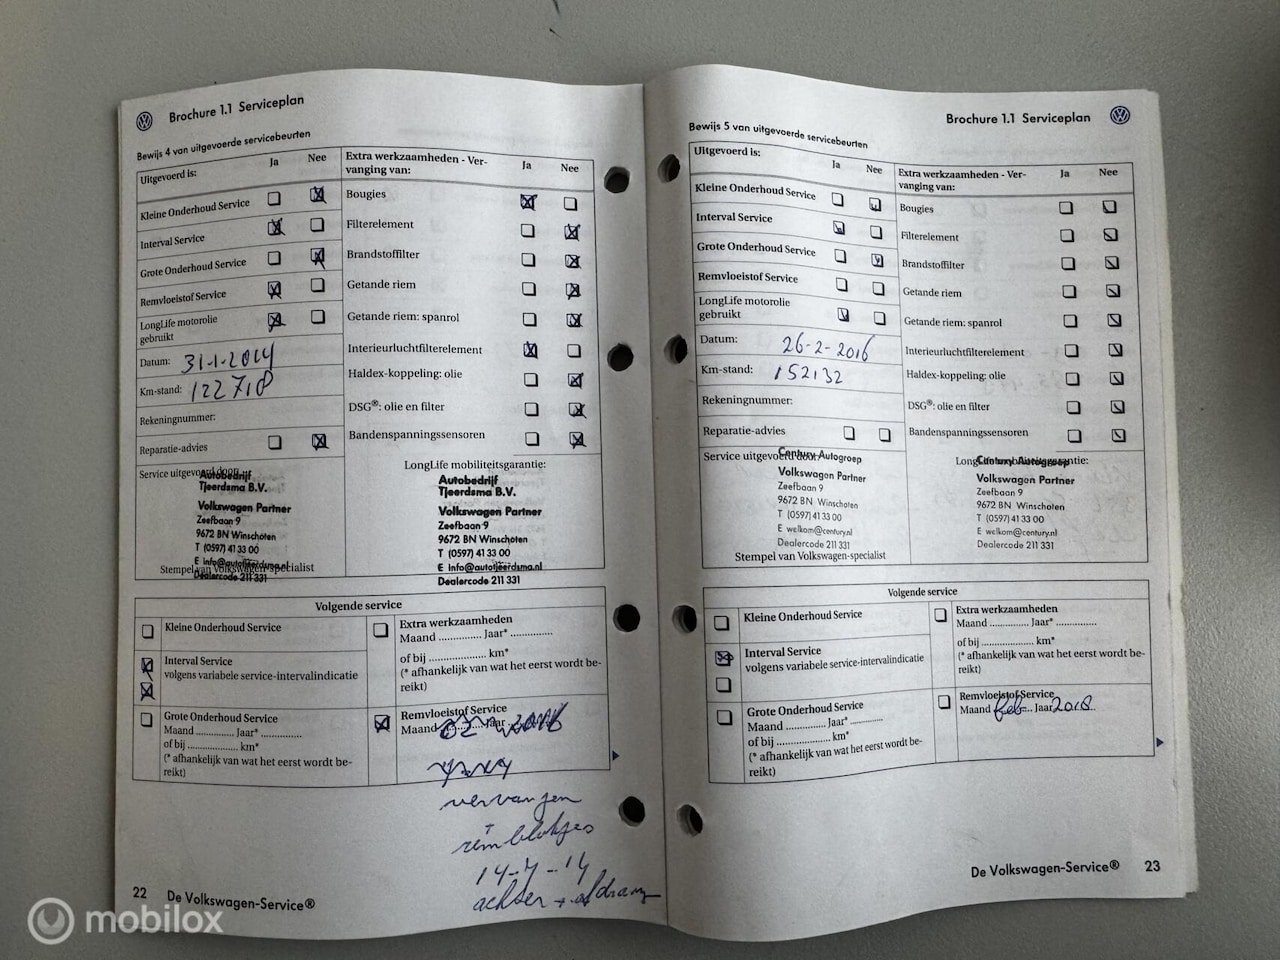 Brochure 1.1 Serviceplan
Bewijs 4 van uitgevoerde servicebeurten
Uitgevoerd is:
Ja
Nee
Kleine Onderhoud Service
Interval Service
Grote Onderhoud Service
Remvloeistof Service
LongLife motorolie
gebruikt
Datum: 31-1-2014
Km-stand: 122718
Rekeningnummer:
Reparatie-advies
Service uitgevoerd door:
Autobedrijf
Tjeerdsma B.V.
Volkswagen Partner
Zeefbaan 9
9672 BN Winschoten
T (0597) 41 33 00
E info@autotjeerdsma.nl
Stempel van Volkswagen-specialist
Dealercode 211 331
Extra werkzaamheden - Ver-
vanging van:
Ja
Nee
Bougies
Filterelement
Brandstoffilter
Getande riem
Getande riem: spanrol
Interieurluchtfilterelement
Haldex-koppeling: olie
DSG®: olie en filter
Bandenspanningssensoren
LongLife mobiliteitsgarantie:
Autobedrijf
Tjeerdsma B.V.
Volkswagen Partner
Zeefbaan 9
9672 BN Winschoten
T (0597) 41 33 00
E info@autotjeerdsma.nl
Dealercode 211 331
Volgende service
Kleine Onderhoud Service
Interval Service
volgens variabele service-intervalindicatie
Grote Onderhoud Service
Maand ............... Jaar* ...............
of bij .................... km*
(* afhankelijk van wat het eerst wordt be-
reikt)
Extra werkzaamheden
Maand ............... Jaar* ...............
of bij .................... km*
(* afhankelijk van wat het eerst wordt be-
reikt)
Remvloeistof Service
Maand 02 Jaar 2016
vervangen
remblokjes
achter +
22 De Volkswagen-Service®
Brochure 1.1 Serviceplan
Bewijs 5 van uitgevoerde servicebeurten
Uitgevoerd is:
Ja
Nee
Kleine Onderhoud Service
Interval Service
Grote Onderhoud Service
Remvloeistof Service
LongLife motorolie
gebruikt
Datum: 26-2-2016
Km-stand: 152132
Rekeningnummer:
Reparatie-advies
Service uitgevoerd door:
Century Autogroep
Volkswagen Partner
Zeefbaan 9
9672 BN Winschoten
T (0597) 41 33 00
E welkom@century.nl
Dealercode 211 331
Stempel van Volkswagen-specialist
Extra werkzaamheden - Ver-
vanging van:
Ja
Nee
Bougies
Filterelement
Brandstoffilter
Getande riem
Getande riem: spanrol
Interieurluchtfilterelement
Haldex-koppeling: olie
DSG®: olie en filter
Bandenspanningssensoren
LongLife mobiliteitsgarantie:
Century Autogroep
Volkswagen Partner
Zeefbaan 9
9672 BN Winschoten
T (0597) 41 33 00
E welkom@century.nl
Dealercode 211 331
Volgende service
Kleine Onderhoud Service
Interval Service
volgens variabele service-intervalindicatie
Grote Onderhoud Service
Maand ............... Jaar* ...............
of bij .................... km*
(* afhankelijk van wat het eerst wordt be-
reikt)
Extra werkzaamheden
Maand ............... Jaar* ...............
of bij .................... km*
(* afhankelijk van wat het eerst wordt be-
reikt)
Remvloeistof Service
Maand feb Jaar 2018
De Volkswagen-Service® 23
mobilox